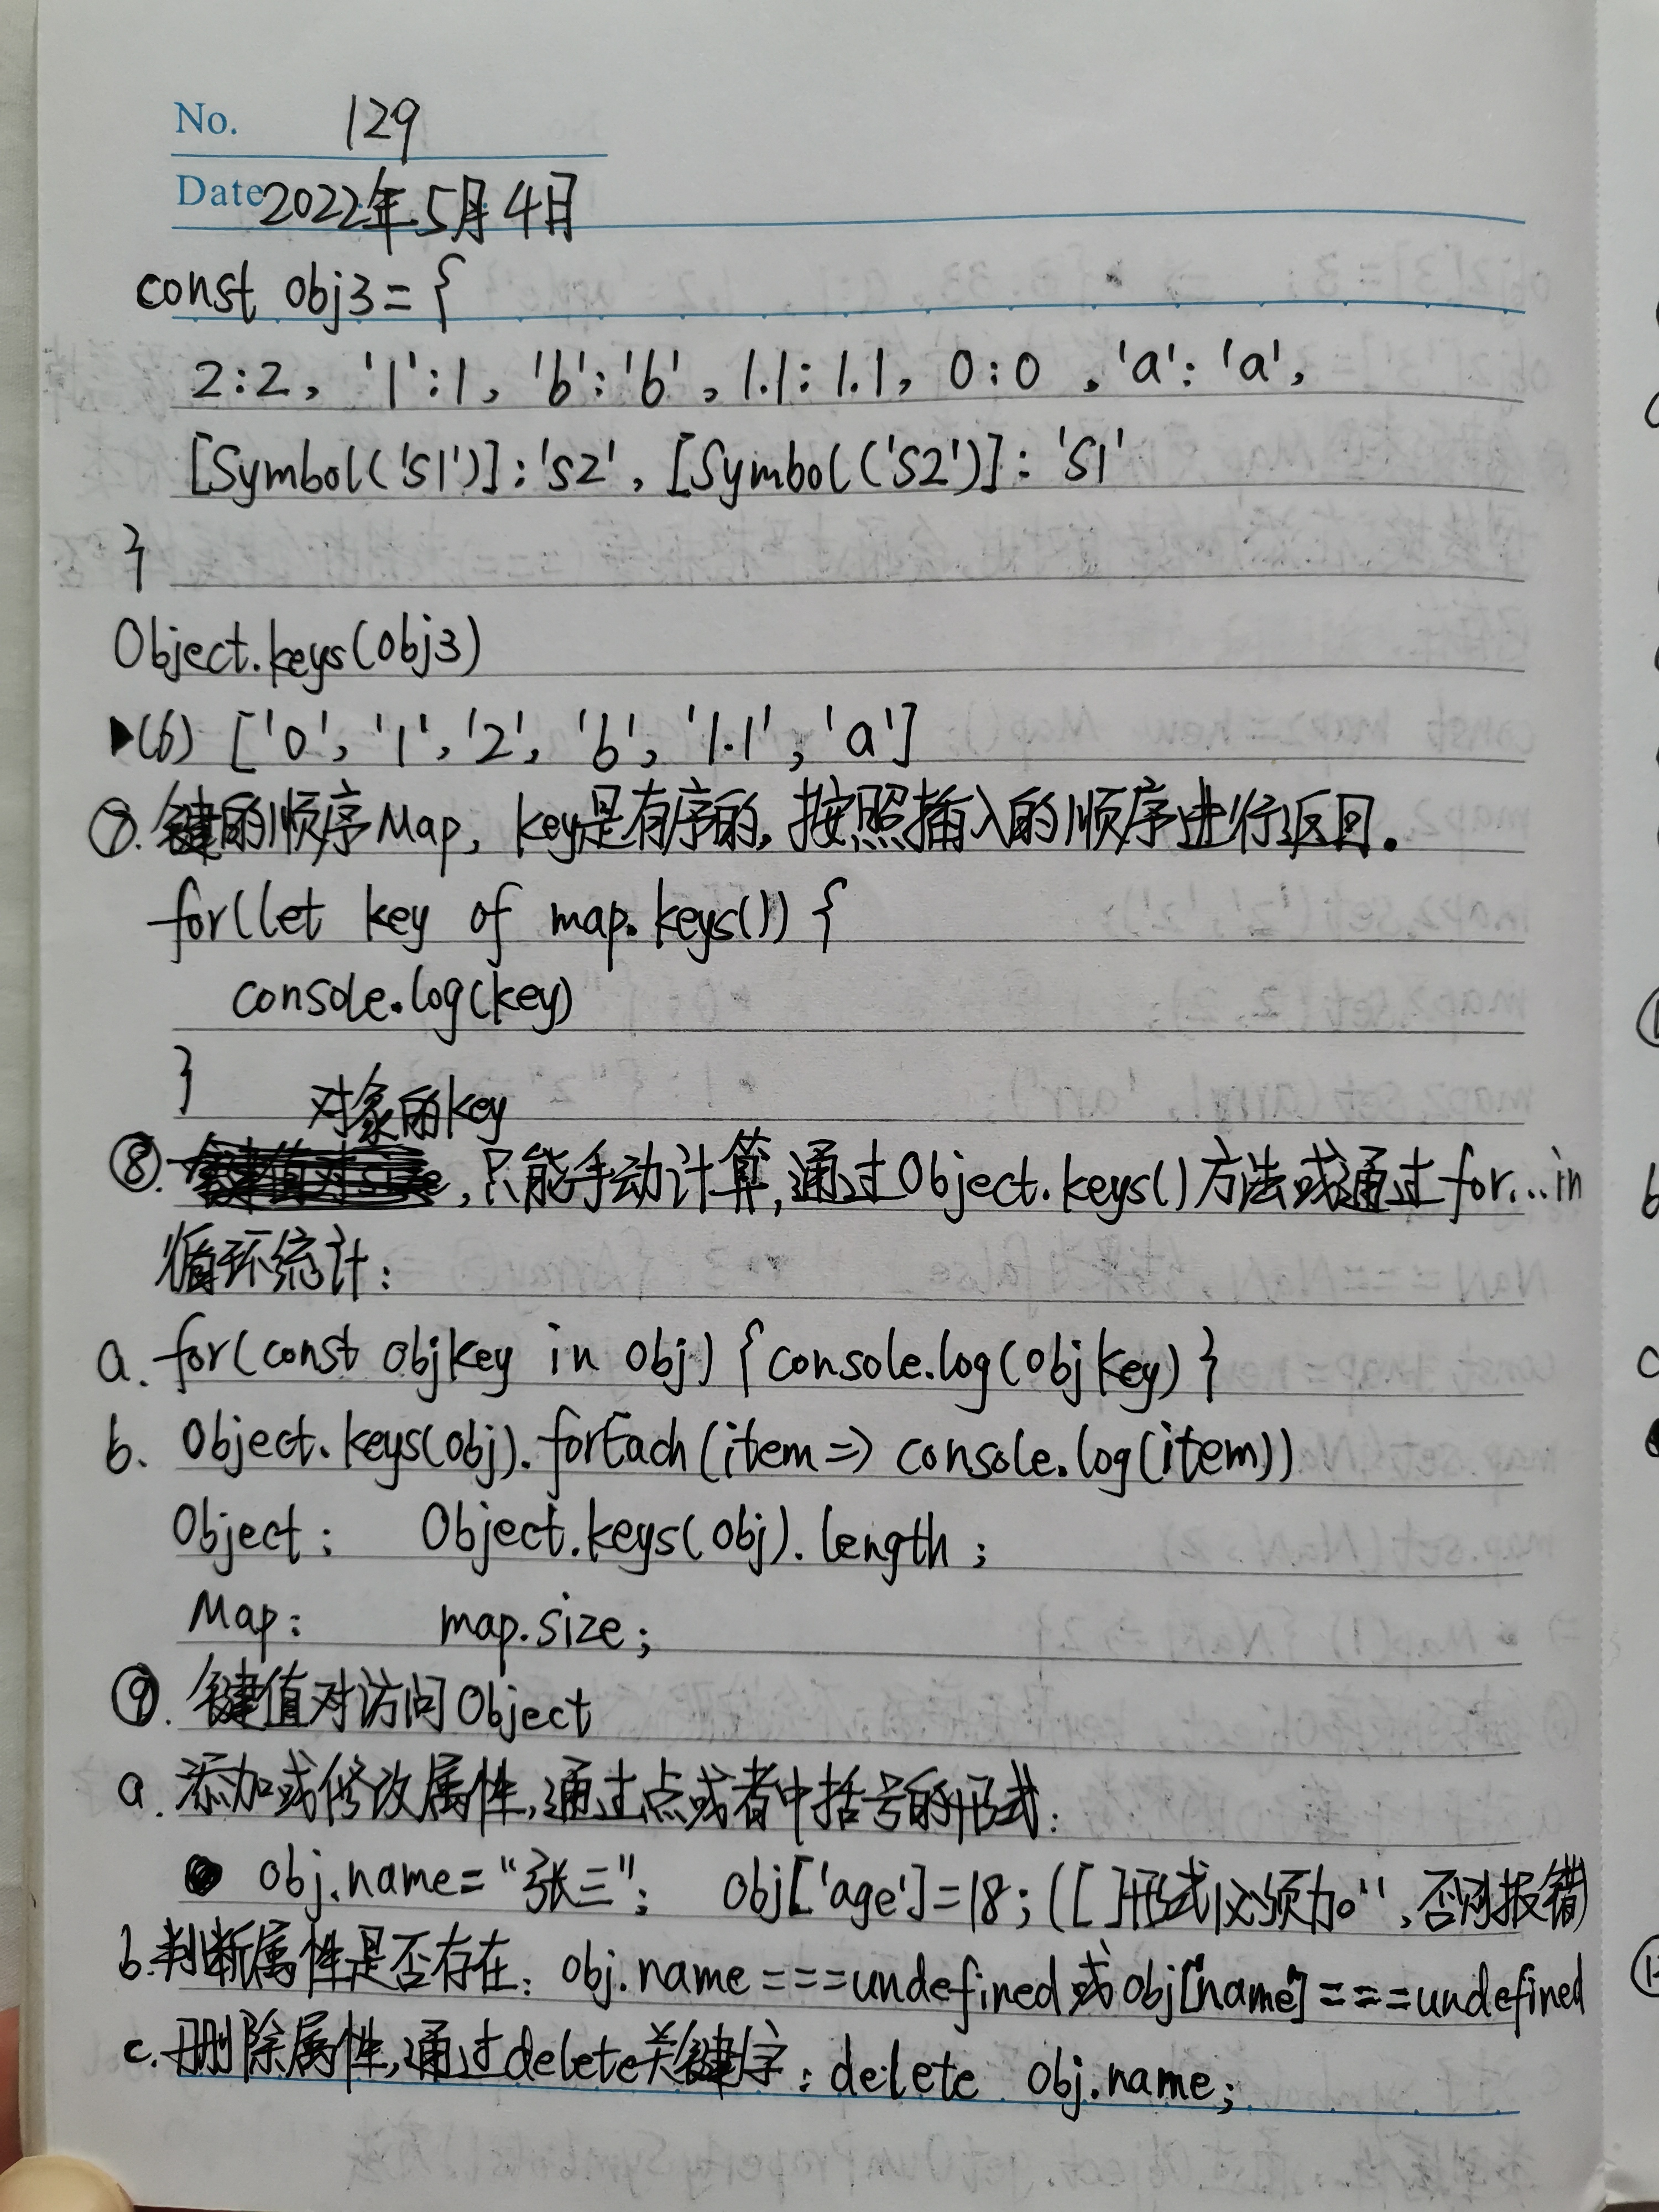 No. 129
Date 2022年5月4日
const obj3={
2:2, '1':1, 'b':'b', 1.1:1.1, 0:0 , 'a':'a',
[Symbol('S1')]:'S2', [Symbol('S2')]:'S1'
}
Object.keys(obj3)
▶(6) ['0', '1', '2', 'b', '1.1', 'a']
⑦.键的顺序Map, key是有序的,按照插入的顺序进行返回.
for(let key of map.keys()) {
console.log(key)
}
对象的key
⑧. ,只能手动计算,通过Object.keys()方法或通过for...in
循环统计:
a. for(const objkey in obj) {console.log(objkey)}
b. Object.keys(obj).forEach(item=> console.log(item))
Object: Object.keys(obj).length;
Map: map.size;
⑨. 键值对访问Object
a. 添加或修改属性,通过点或者中括号的形式:
obj.name="张三"; obj['age']=18; ([ ]形式必须加'', 否则报错)
b.判断属性是否存在: obj.name===undefined或obj["name"]===undefined
c.删除属性,通过delete关键字: delete obj.name;